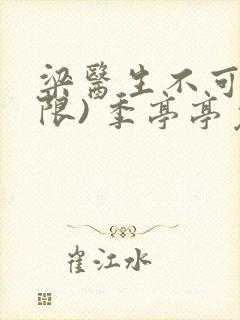 梁醫生不可
限)季亭亭
崔江水